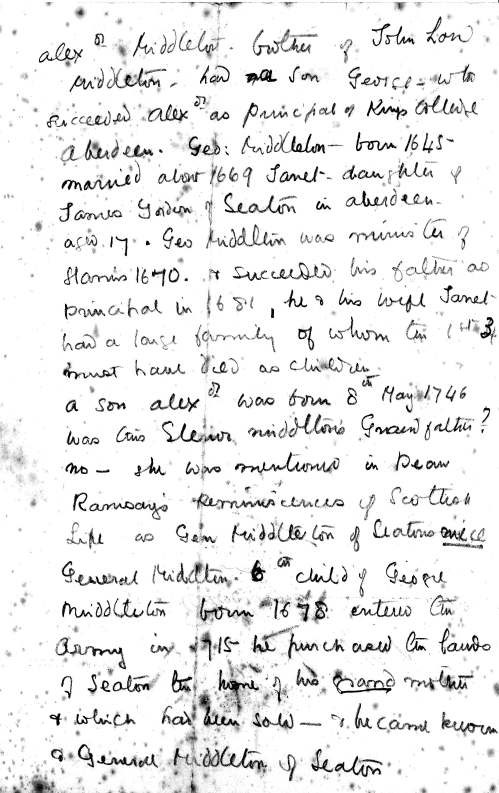 alex dr Middleton. brother of John Low
Middleton - had a son George - who
succeeded alex dr as principal of Kings College
aberdeen. Geo: Middleton - born 1645 -
married about 1669 Janet - daughter of
James Gordon of Seaton in aberdeen -
aged 17. Geo Middleton was minister of
Glamis 1670. & succeeded his father as
principal in 1684, he & his wife Janet
had a large family of whom the 1st 3
must have died as children
a son alex dr was born 8th May 1746
was this Elenor middletons Grandfather?
no - she was mentioned in Dean
Ramsay's Reminiscences of Scottish
Life as Gen Middleton of Seatons niece
General Middleton. 6th child of George
Middleton born 1678 entered the
Army in 1715 he purchased the lands
of Seaton the home of his grand mother
& which had been sold - & became known
as General Middleton of Seaton